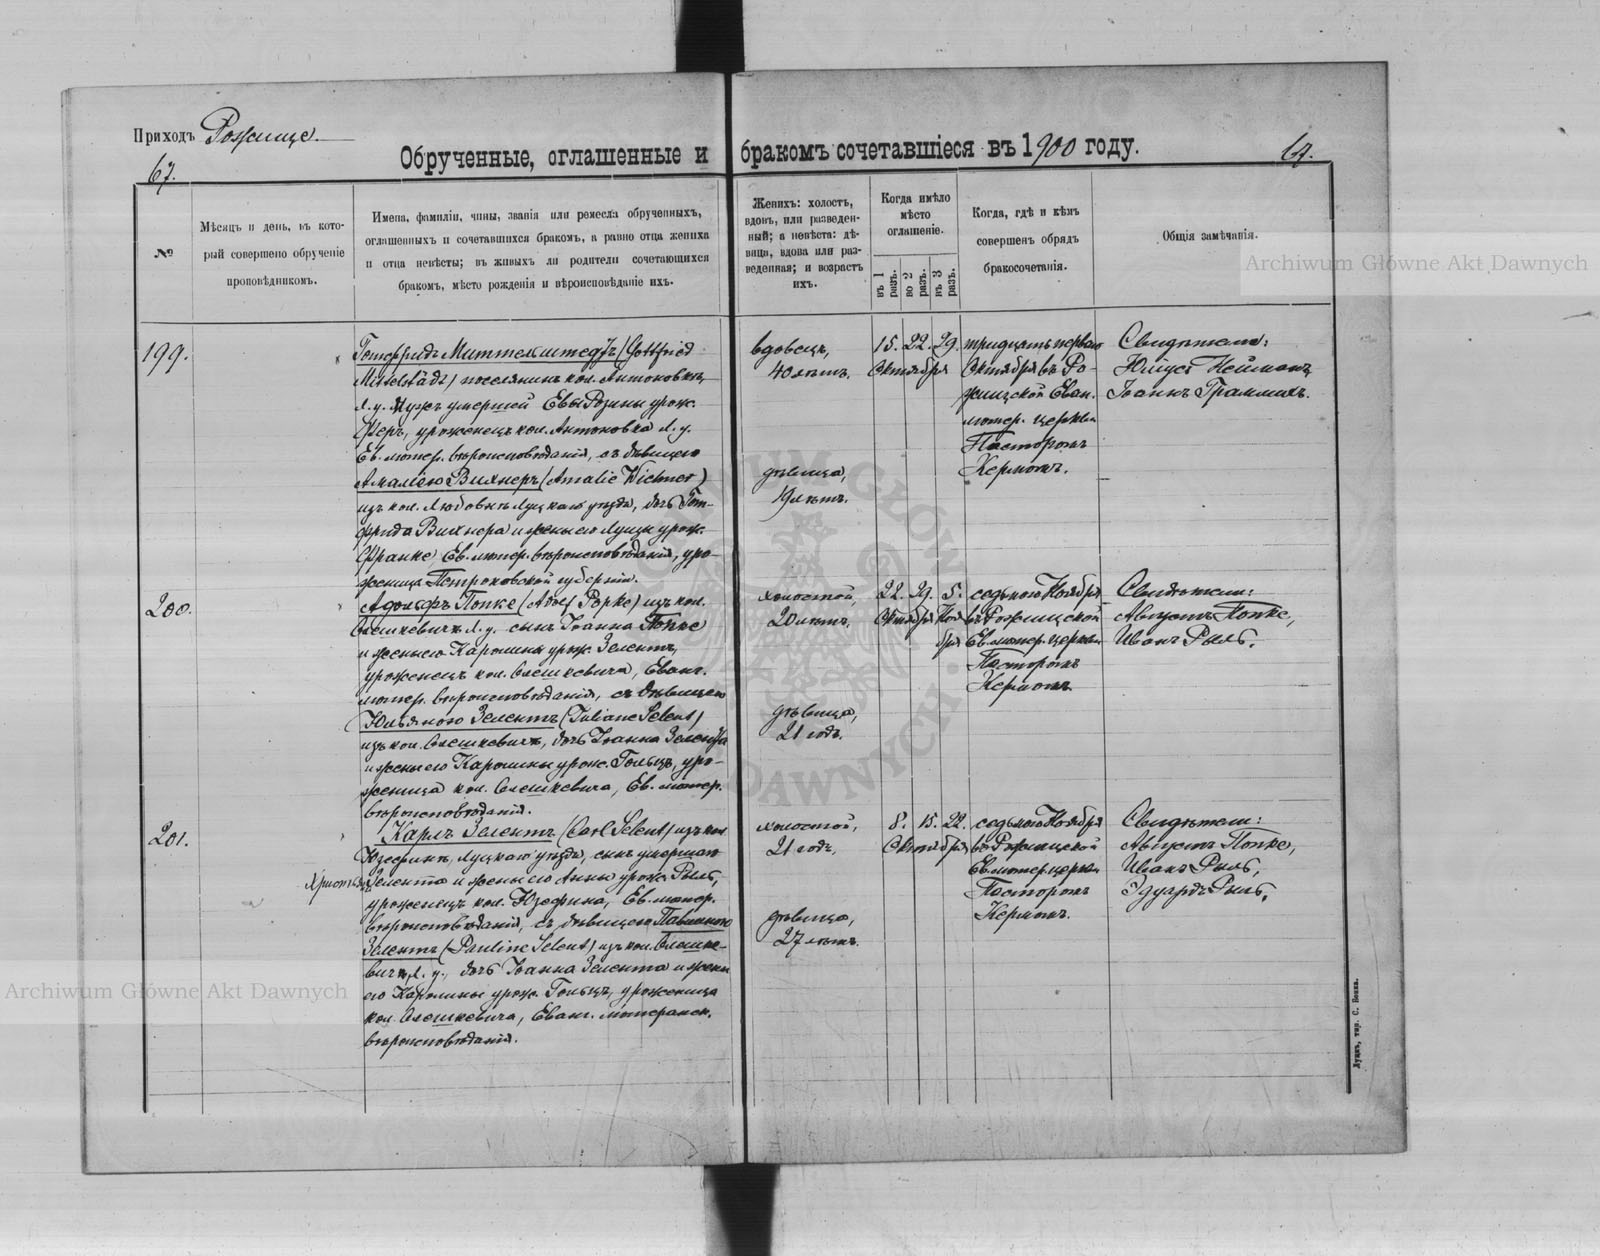 Приходъ Рожище.
67.
Обрученные, оглашенные и бракомъ сочетавшіеся въ 1900 году.
№
Мѣсяцъ и день, въ кото-
рый совершено обрученіе
проповѣдникомъ.
Имена, фамиліи, чины, званія или ремесла обрученныхъ,
оглашенныхъ и сочетавшихся бракомъ, а равно отца жениха
и отца невѣсты; въ живыхъ ли родители сочетающихся
бракомъ, мѣсто рожденія и вѣроисповѣданіе ихъ.
Женихъ: холостъ,
вдовъ, или разведен-
ный; а невѣста: дѣ-
вица, вдова или раз-
веденная; и возрастъ
ихъ.
Когда имѣло
мѣсто
оглашеніе.
въ 1 разъ.
во 2 разъ.
въ 3 разъ.
Когда, гдѣ и кѣмъ
совершенъ обрядъ
бракосочетанія.
Общія замѣчанія.
Archiwum Główne Akt Dawnych
199.
Готфридъ Миттельштедтъ (Gottfried
Mittelstädt) поселянинъ кол. Антоновки,
Л. у. мужъ умершей Евы Розины урож.
уроженецъ кол. Антоновка Л. у.
Ев. лютер. вѣроисповѣданія, съ дѣвицею
Амаліею Вихнеръ (Amalie Wichner)
изъ кол. Луцкаго уѣзда, дочь Гот-
фрида Вихнера и жены его урож.
Франке, Ев. лютер. вѣроисповѣданія, уро-
женица Петроковской губерніи.
вдовецъ,
40 лѣтъ.
дѣвица,
19 лѣтъ.
15. 22. 29.
Октября
тридцать перваго
Октября въ Ро-
жищской Еван.
лютер. церкви
Пасторомъ
Кермомъ.
Свидѣтели:
Юліусъ Нейманъ,
Іоаннъ Граммихъ.
200.
Адольфъ Попке (Adolf Popke) изъ кол.
Олешкевичъ Л. у. сынъ Іоанна Попке
и жены его Каролины урож. Зелентъ,
уроженецъ кол. Олешкевича, Еванг.
лютер. вѣроисповѣданія, съ дѣвицею
Юльяною Зелентъ (Juliane Selent)
изъ кол. Олешкевичъ, дочь Іоанна Зелента
и жены его Каролины урож. Гольцъ, уро-
женица кол. Олешкевича, Ев. лютер.
вѣроисповѣданія.
холостой,
20 лѣтъ.
дѣвица,
21 годъ.
22. 29. 5.
Октября Ноя
бря
седьмого Ноября
въ Рожищской
Ев. лютер. церкви
Пасторомъ
Кермомъ
Свидѣтели:
Августъ Попке,
Иванъ Рыль.
201.
Карлъ Зелентъ (Carl Selent) изъ кол.
Юзефинъ, Луцкаго уѣзда, сынъ умершаго
Зелента и жены его Анны урож. Рыль,
уроженецъ кол. Юзефина, Ев. лютер.
вѣроисповѣданія, съ дѣвицею Павлиною
Зелентъ (Pauline Selent) изъ кол. Олешке-
вичъ, Л. у., дочь Іоанна Зелента и жены
его Каролины урож. Гольцъ, уроженица
кол. Олешкевича, Еванг. лютеранск.
вѣроисповѣданія.
холостой,
21 годъ,
дѣвица,
27 лѣтъ.
8. 15. 22.
Октября
седьмого Ноября
въ Рожищской
Ев. лютер. церкви
Пасторомъ
Кермомъ.
Свидѣтели:
Августъ Попке,
Иванъ Рыль,
Эдуардъ Рыль.
Archiwum Główne Akt Dawnych